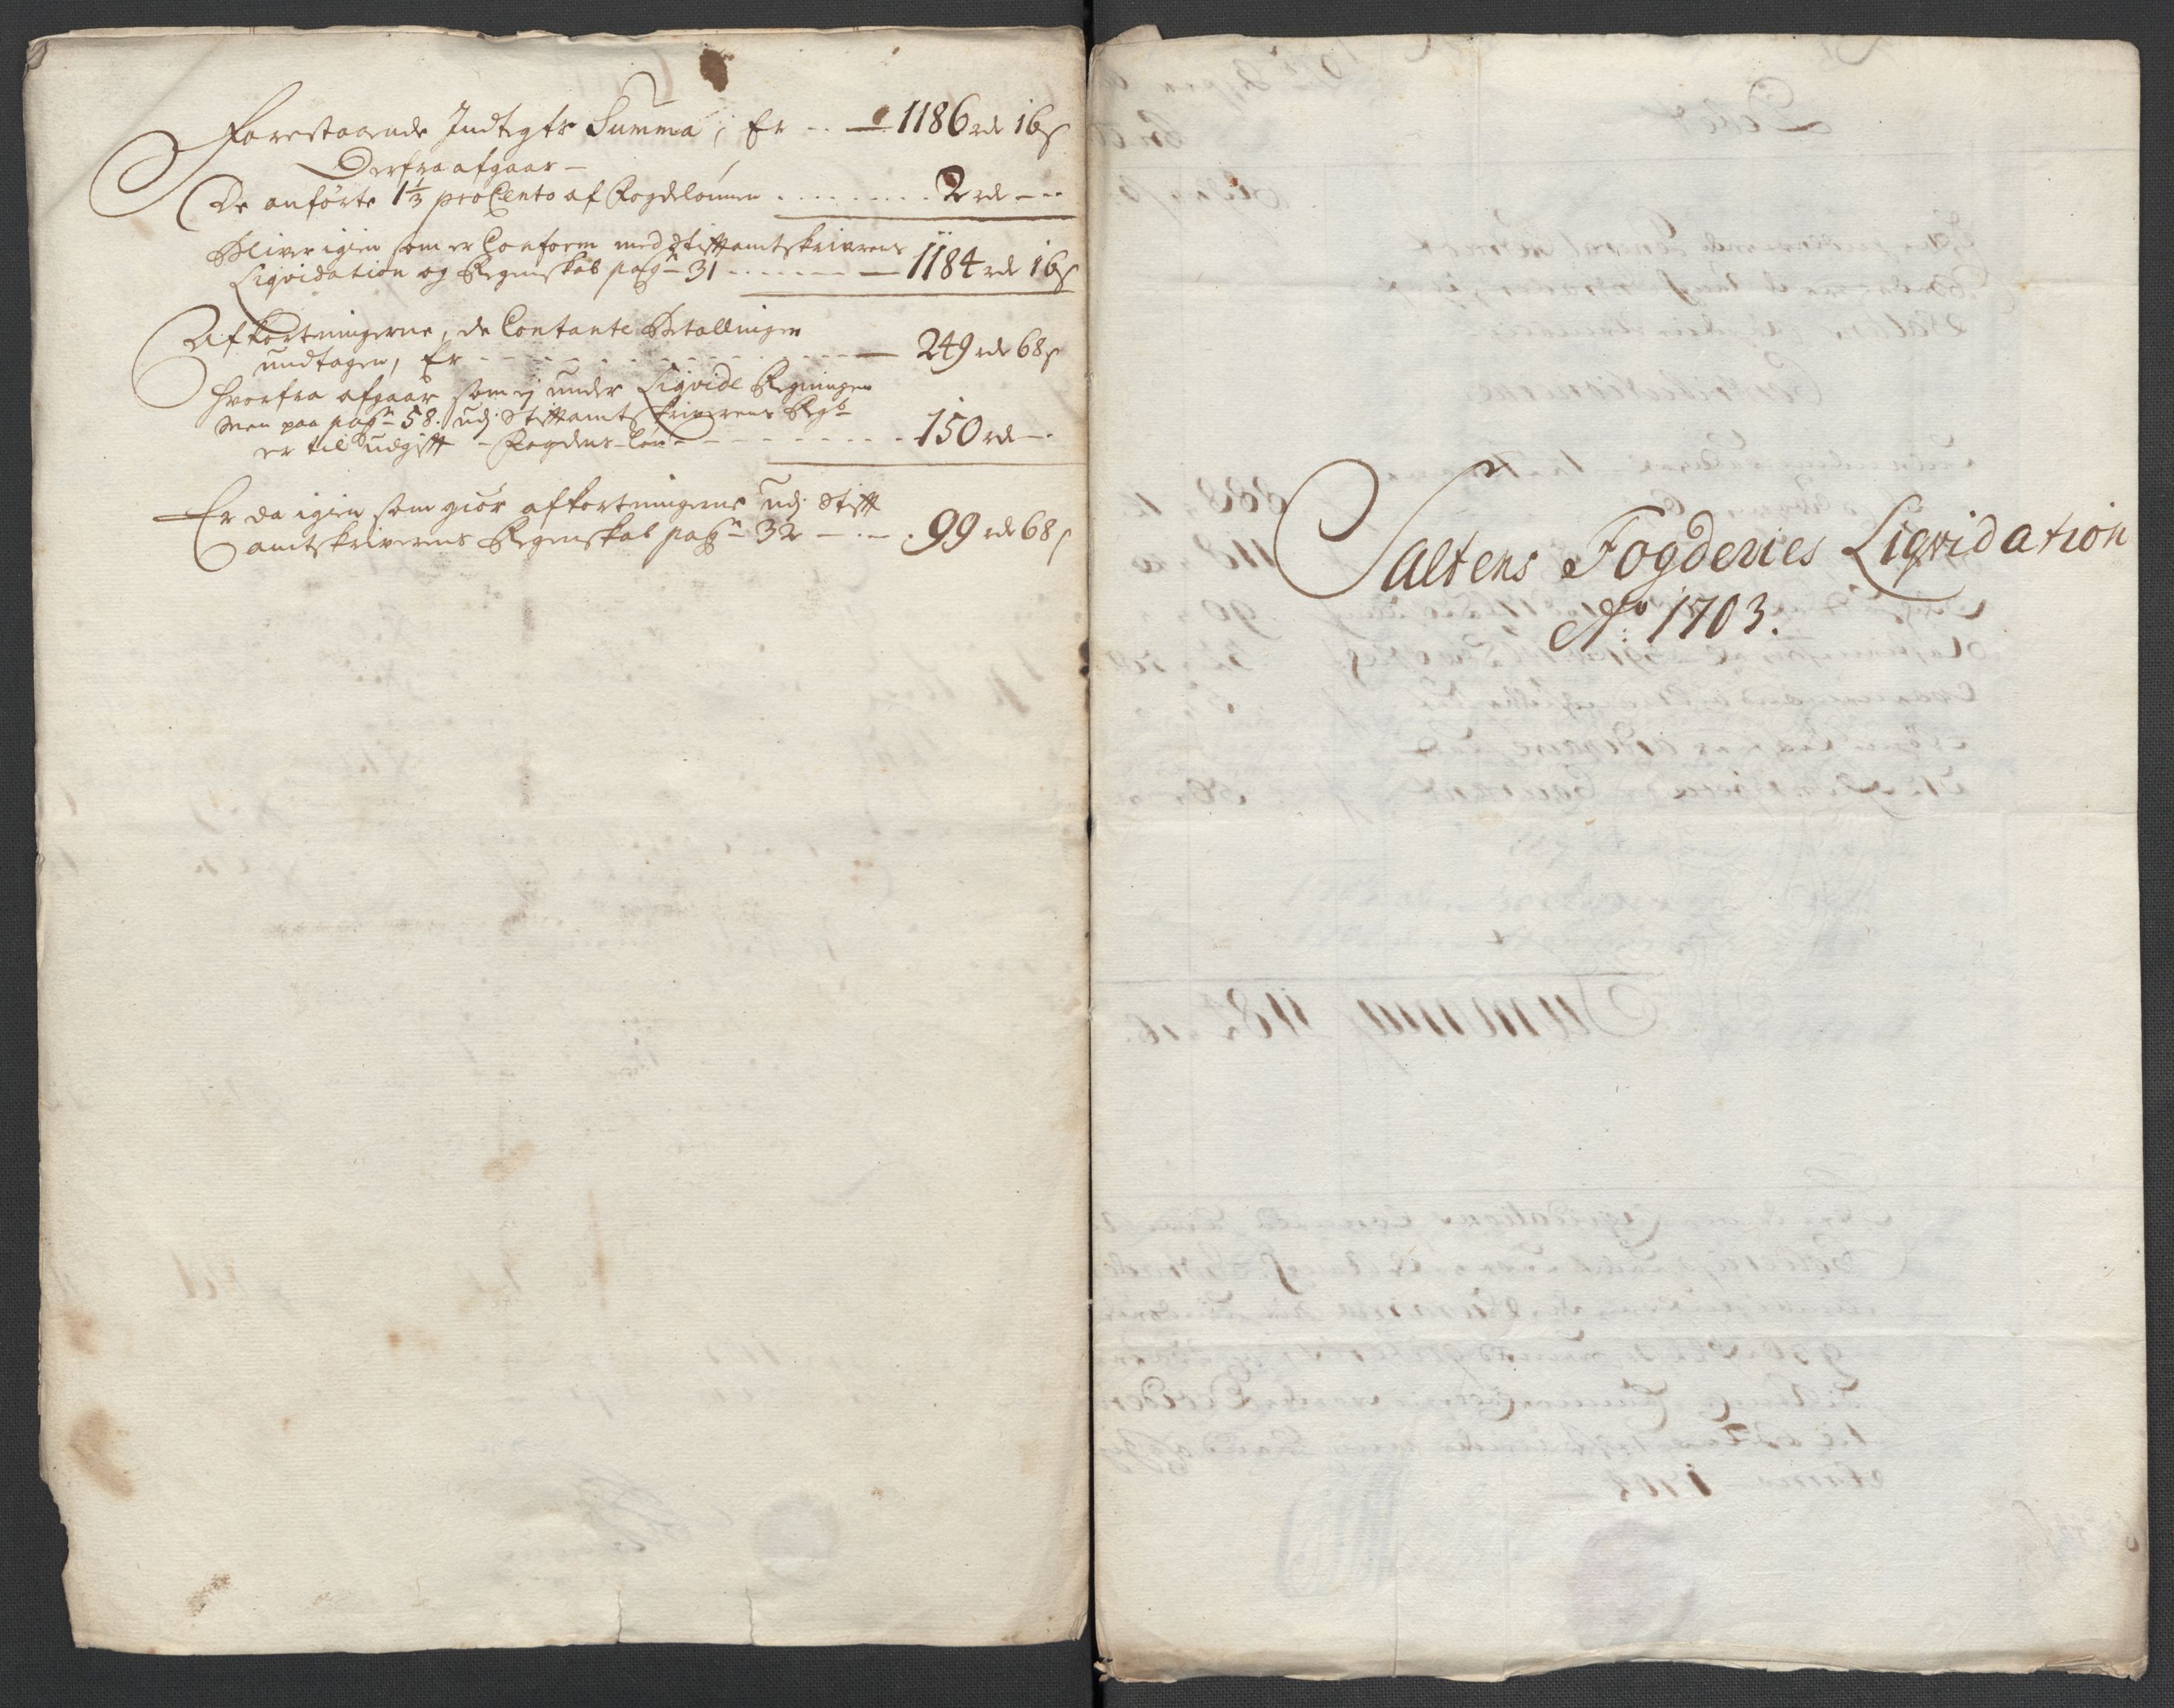 Forestaaende Indtegts Summa, Er .. — 1186 rd 16 s
Derfra afgaar –
De anførte 1⅓ pro Cento af Fogdelønnen . . . . . . . . . 2 rd – –
Bliver igien som er Conform med Stiftamtskriverens
Liqvidation og Regenskab pag: 31 . . . . . . — 1184 rd 16 s
Afkortningerne, de Contante Betallinger
undtagen, Er - - - - - - - — 249 rd 68 s
hvorfra afgaar som ej under Liqvide Regninger
men paa pag: 58. udj Stiftamtskriverens Regb
er til udgift - Fogdens Løn - - - - - - - . 150 rd – .
Er da igien som giør afkortningerne udj Stift
amtskriverens Regenskab pag: 32 — . — . 99 rd 68 s
Saltens Fogderies Liqvidation
Ao: 1703.